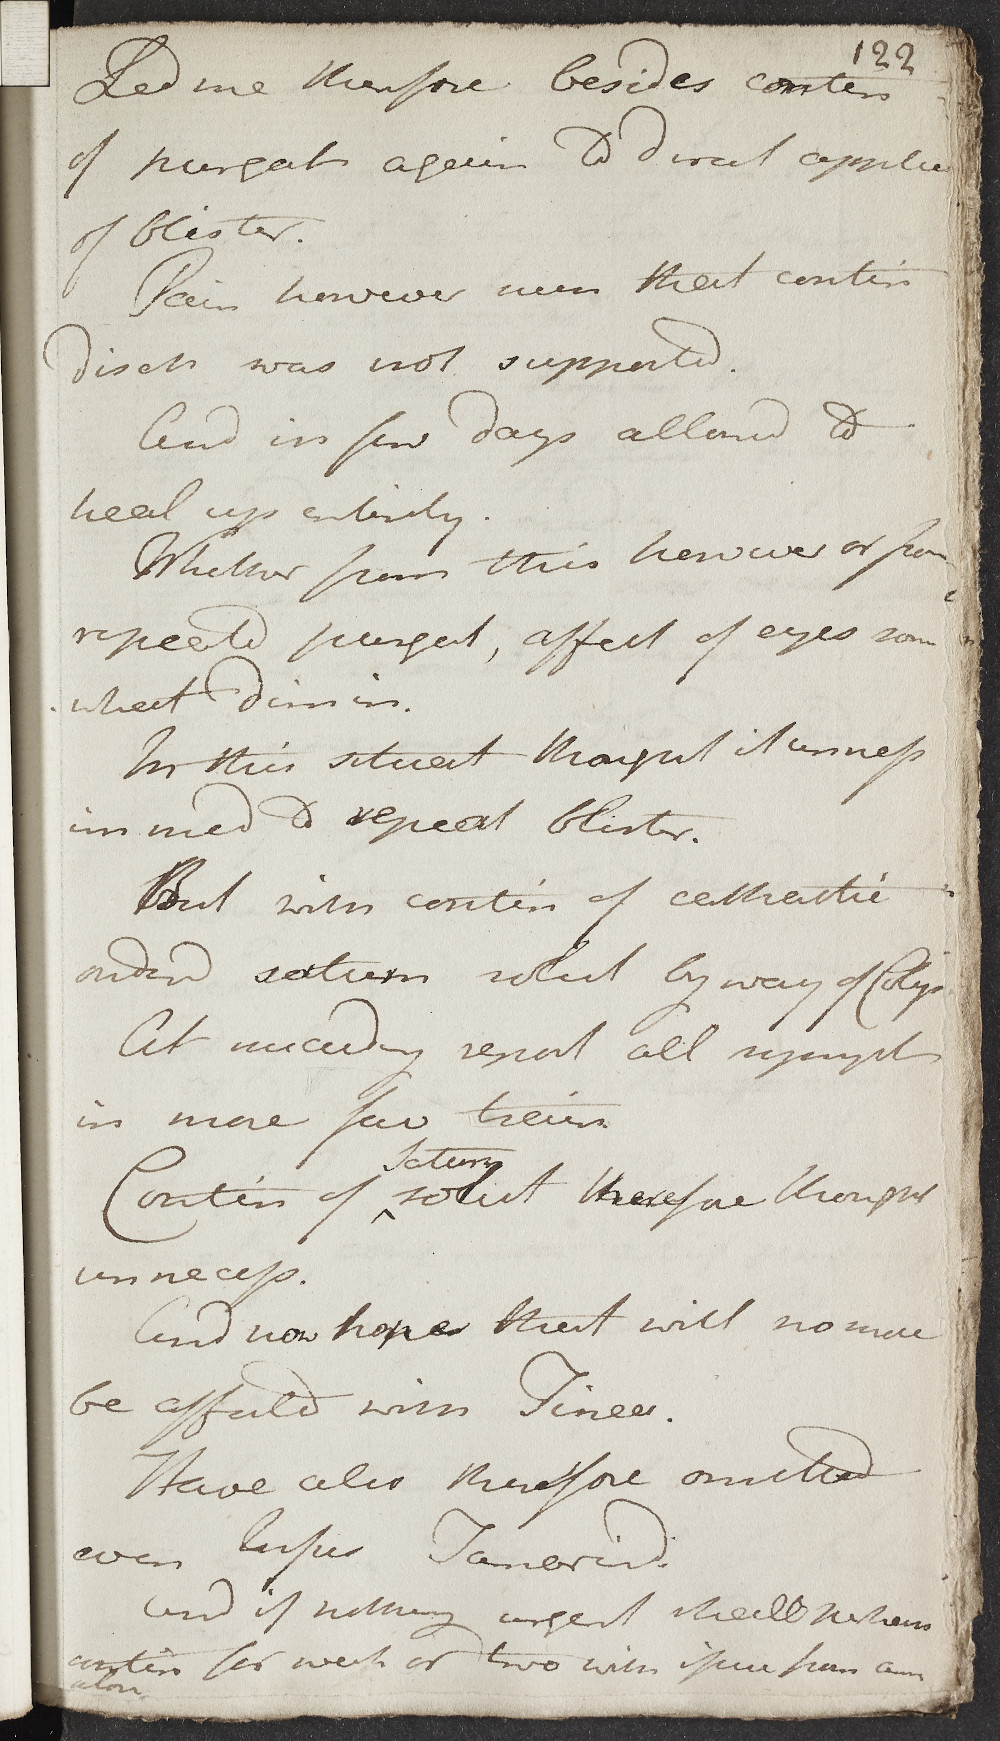 122
Led me therefore besides contin
of purgat again to direct applic
of blister.
Pain however was that contin
disch was not supported.
And in few days allowed to
heal up entirely.
Whether from this however or from
repeated purgat, affect of eyes som
what dimin.
In this situat thought it unness
immed to repeat blister.
But with contin of cathartic
ordered saturn solut by way of Collyr
At succeeding report all sympt
in more fav train
Contin of saturn solut therefore thought
unnecess.
And now hope that will no more
be affected with Tinea.
Have also therefore omitted
even Infus Tamarind.
And if nothing urgent shall perhaps
contin for week or two with issue from arm
alone